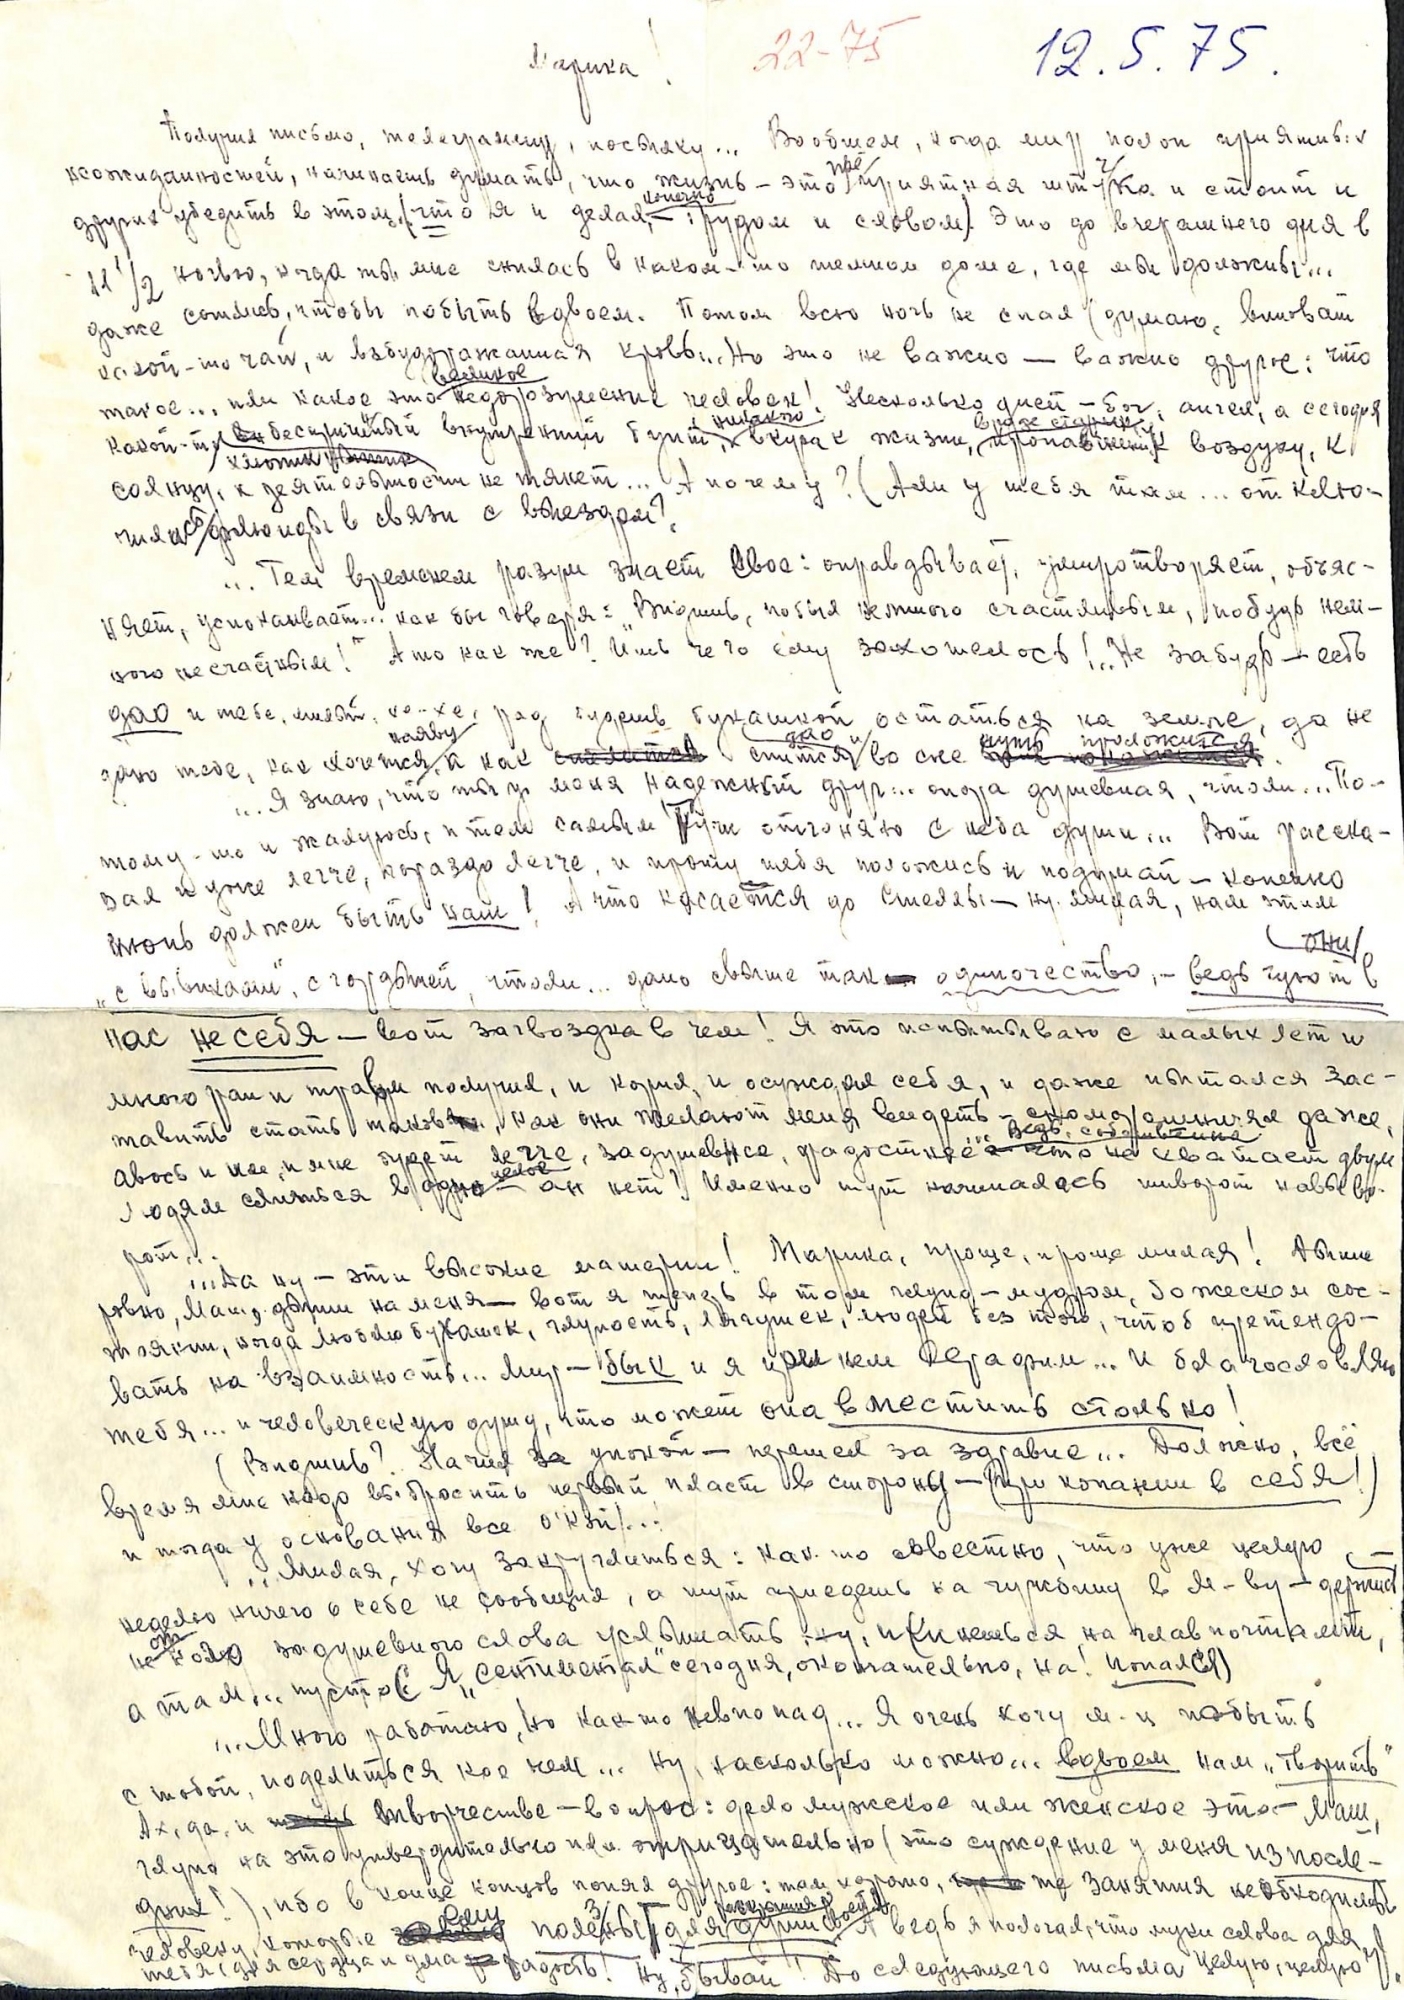 Марика!
22-75
12.5.75.
Получил письмо, телеграмму, посылку... Вообщем, когда мир полон приятных
неожиданностей, начинаешь думать, что жизнь – это приятная штучка и стоит и
других убедить в этом (что я и делаю конечно – трудом и словом). Это до вчерашнего дня в
11 1/2 ночью, когда ты мне снилась в каком-то темном доме, где мы должны...
даже сошлись, чтобы побыть вдвоем. Потом всю ночь не спал (думаю, виноват
какой-то чай, и взбудоражанная кровь... Но это не важно — важно другое: что
такое... или какое это великое недоразумение человек! Несколько дней – бог, ангел, а сегодня
какой-то беспричинный внутренний бунт, никакого вкуса к жизни, к воздуху, к
солнцу, к деятельности не тянет... А почему? (Али у тебя там... отключи-
лись флюиды в связи с выездом?
... Тем временем разум знает свое: оправдывает, умиротворяет, объяс-
няет, успокаивает... как бы говоря: "Видишь, побыл немного счастливым, побудь нем-
ного несчастным!" А то как же? Ишь чего ему захотелось!.. Не забудь – есть
дао и тебе, милый, хе-хе, рад будешь букашкой остаться на земле, да не
дано тебе, как хочется наяву, а как спится и во сне дао путь проложится.
... Я знаю, что ты у меня надежный друг... опора душевная, что ли... По-
тому-то и жалуюсь, и тем самым тучи отгоняю с неба души... Вот расска-
зал и уже легче, гораздо легче, и прошу тебя положись и подумай – конечно
июнь должен быть наш! А что касается до Стеллы – ну, милая, нам этим
"с вывихами", с гордыней, что ли... дано свыше так одиночество, – ведь они чуют в
нас не себя – вот загвоздка в чем! Я это испытываю с малых лет и
много ран и травм получил, и корил, и осуждал себя, и даже пытался зас-
тавить стать таковым, как они желают меня видеть – скоморошничал даже,
авось и им, и мне будет легче, задушевнее, радостнее... Ведь, собственно что не хватает двум
людям слиться в одно целое – ан нет! Именно тут начиналось шиворот навыво-
рот...
... Да ну – эти высокие материи! Марика, проще, проще милая! Дыши
ровно, Маш, дыши на меня – вот я теперь в том чудно-мудром, божеском сос-
тоянии, когда люблю букашек, глупость, лягушек, людей без того, чтоб претендо-
вать на взаимность... Мир – бык и я при нем Серафим... И благословляю
тебя... и человеческую душу, что может она вместить столько!
(Видишь? Начал за упокой – перешел за здравие... Должно, всё
время мне надо выбросить первый пласт в стороны – (при копании в себя!)
и тогда у основания все о'кэй!..
... Милая, хочу закруглиться: как-то совестно, что уже целую
неделю ничего о себе не сообщил, а тут приедешь на чужбину в М-ву –
не от кого задушевного слова услышать, ну, и кинешься на главпочтамт,
а там... пусто (Я "сентиментал" сегодня, окончательно, на! попался)
... Много работаю, но как-то невпопад... Я очень хочу м.ц побыть
с тобой, поделиться кое чем... ну, насколько можно... вдвоем нам "творить"
Ах, да, и о творчестве – вопрос: дело мужское или женское это – Маш,
глупо на это утвердительно или отрицательно (это суждение у меня из после-
дних!), ибо в конце концов понял другое: там хорошо, те занятия необходимы
человеку, которые ему полезны для души своей. А ведь я полагал, что муки слова для
тебя (для сердца и ума) радость! Ну, бывай! До следующего письма целую, целую!